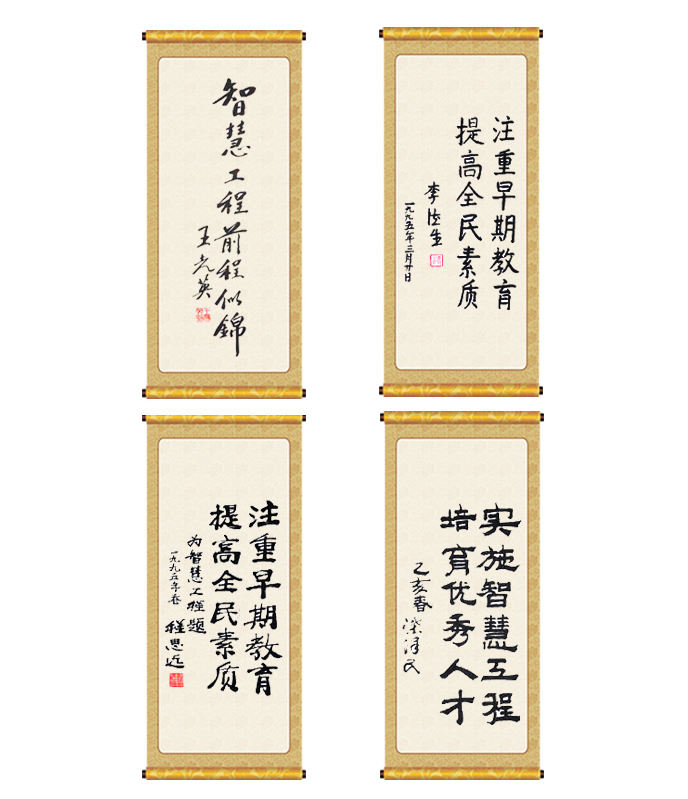 智慧工程前程似錦
王光英
注重早期教育
提高全民素质
李德生
一九九五年三月廿日
注重早期教育
提高全民素质
为智慧工程题
一九九五年春
程思远
实施智慧工程
培育优秀人才
乙亥春
梁泽民